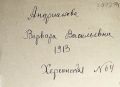 Андрианова
Варвара Васильевна
1913
Херсонская № 64